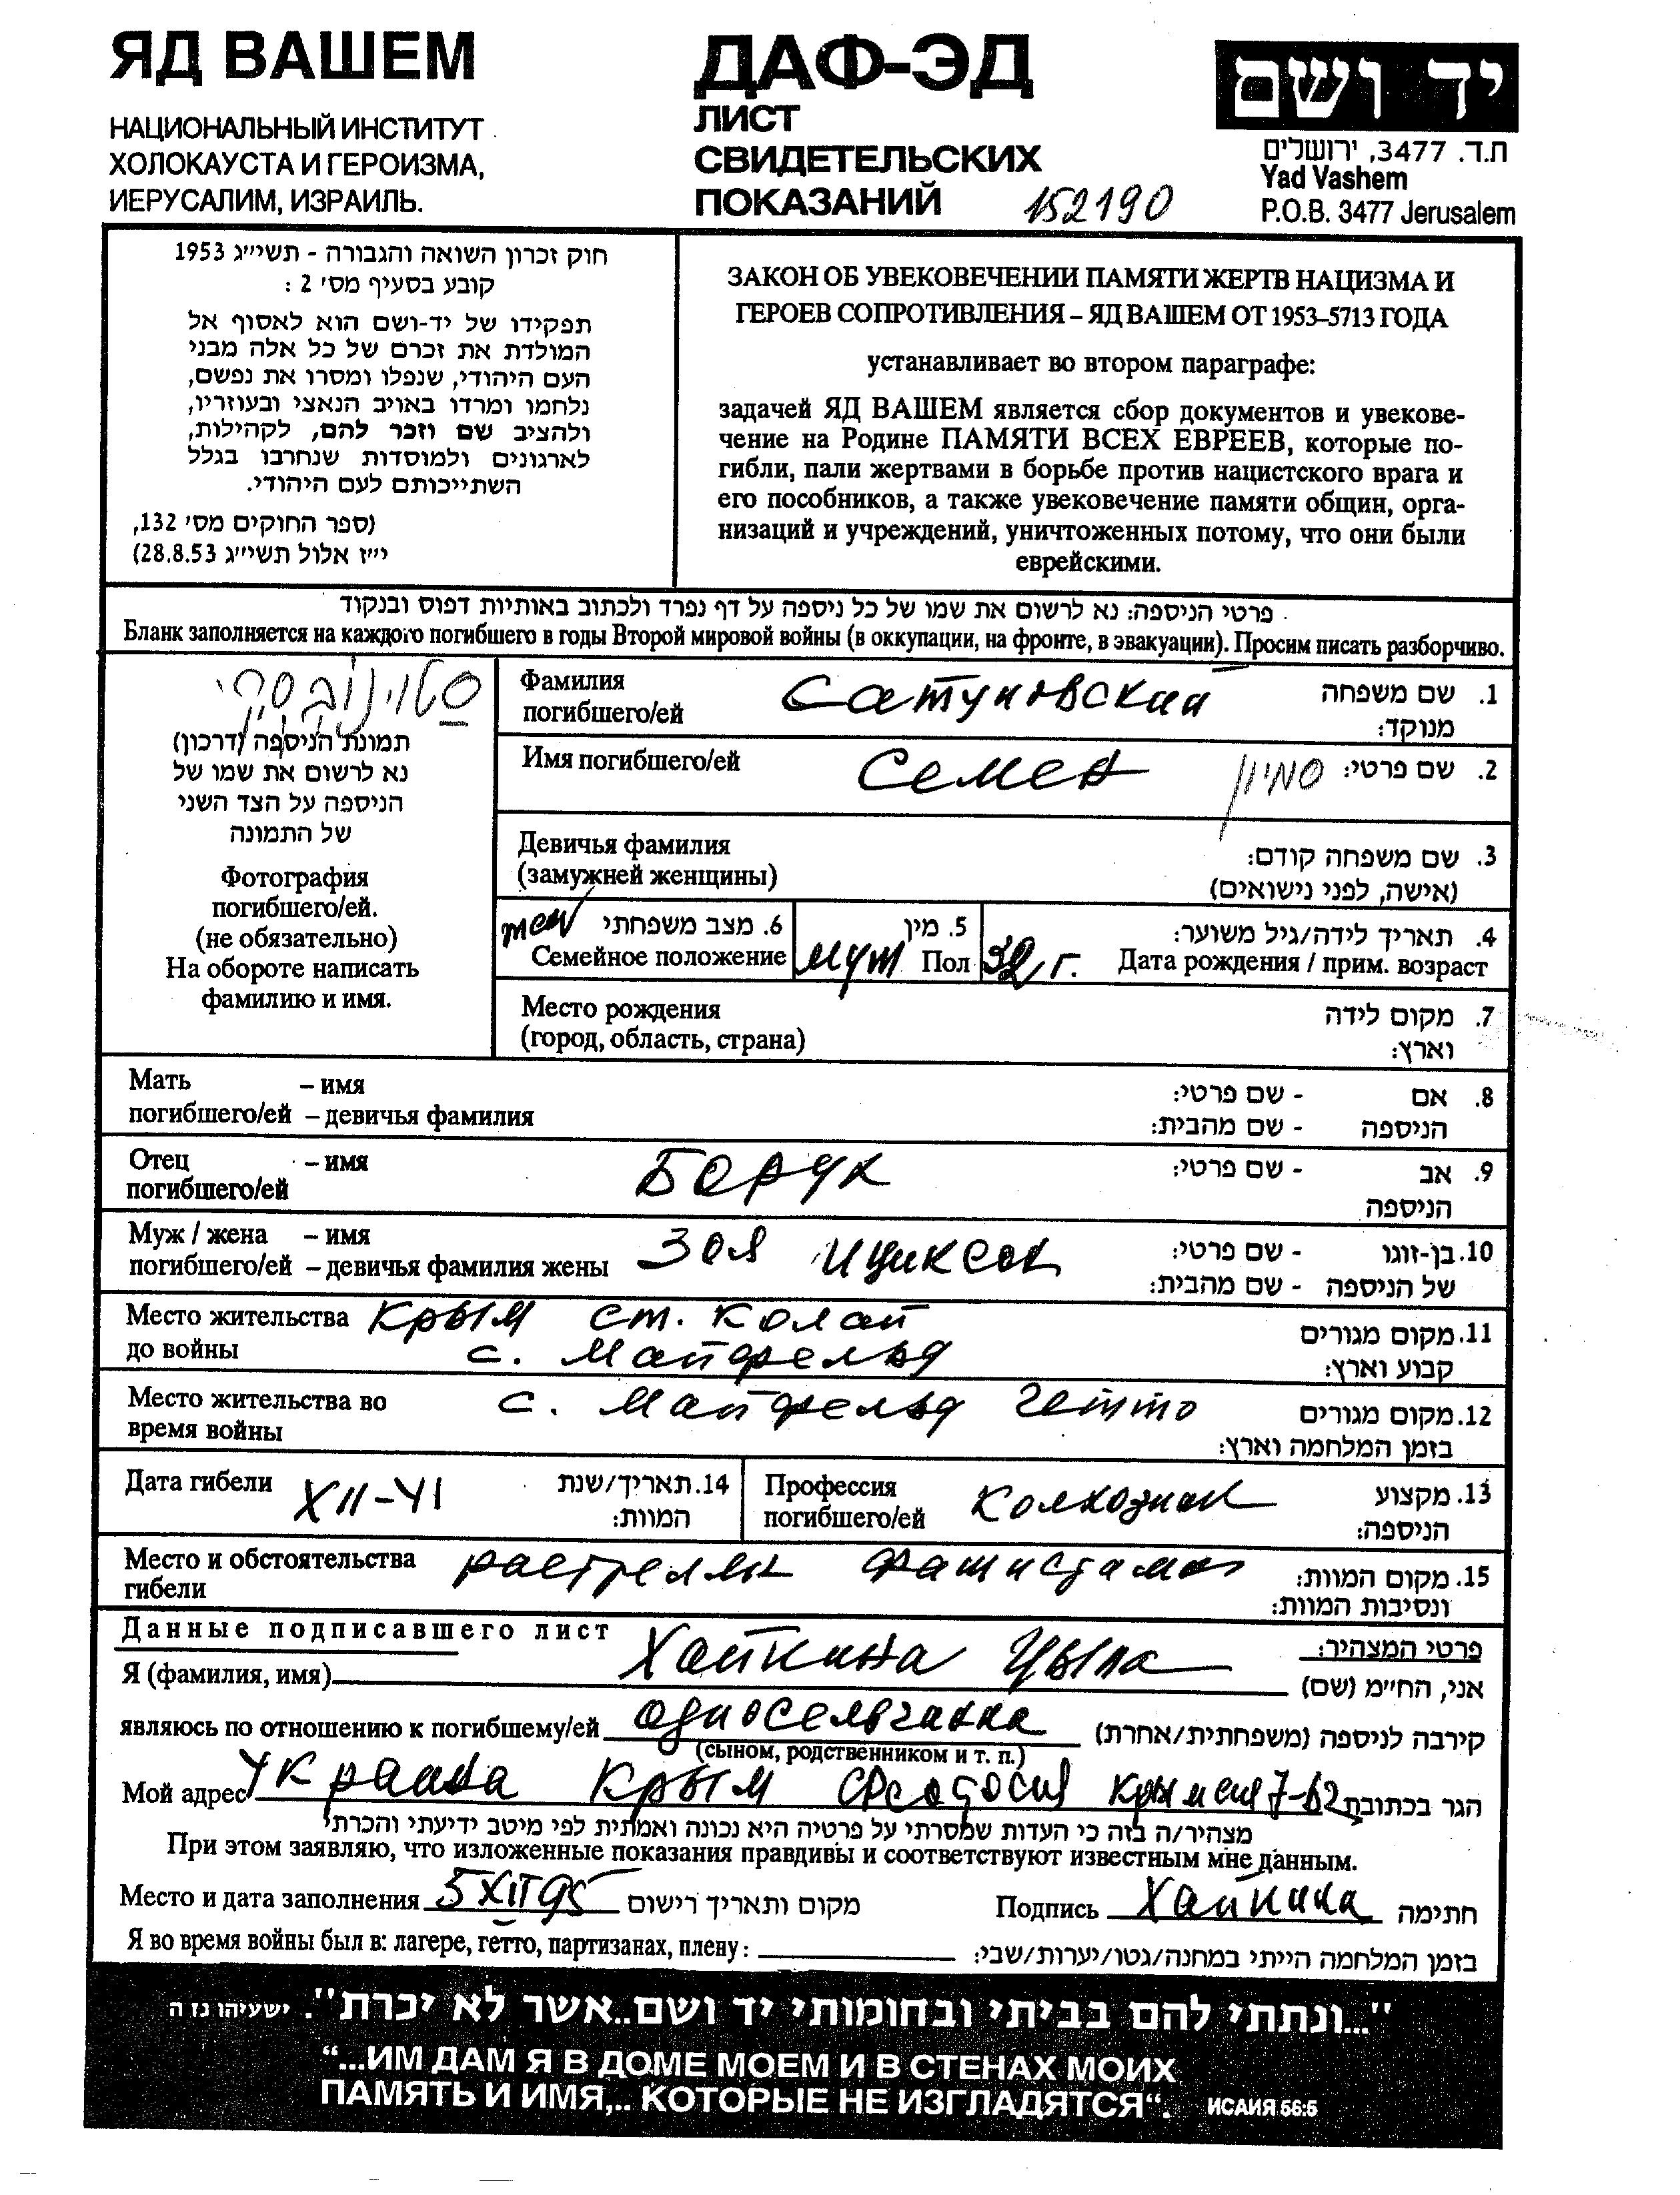 ЯД ВАШЕМ
НАЦИОНАЛЬНЫЙ ИНСТИТУТ
ХОЛОКАУСТА И ГЕРОИЗМА,
ИЕРУСАЛИМ, ИЗРАИЛЬ.
ДАФ-ЭД
ЛИСТ
СВИДЕТЕЛЬСКИХ
ПОКАЗАНИЙ 152190
יד ושם
ת.ד. 3477, ירושלים
Yad Vashem
P.O.B. 3477 Jerusalem
חוק זכרון השואה והגבורה - תשי״ג 1953
קובע בסעיף מס׳ 2 :
תפקידו של יד-ושם הוא לאסוף אל
המולדת את זכרם של כל אלה מבני
העם היהודי, שנפלו ומסרו את נפשם,
נלחמו ומרדו באויב הנאצי ובעוזריו,
ולהציב שם וזכר להם, לקהילות,
לארגונים ולמוסדות שנחרבו בגלל
השתייכותם לעם היהודי.
(ספר החוקים מס׳ 132,
י״ז אלול תשי״ג 28.8.53)
ЗАКОН ОБ УВЕКОВЕЧЕНИИ ПАМЯТИ ЖЕРТВ НАЦИЗМА И
ГЕРОЕВ СОПРОТИВЛЕНИЯ – ЯД ВАШЕМ ОТ 1953–5713 ГОДА
устанавливает во втором параграфе:
задачей ЯД ВАШЕМ является сбор документов и увекове-
чение на Родине ПАМЯТИ ВСЕХ ЕВРЕЕВ, которые по-
гибли, пали жертвами в борьбе против нацистского врага и
его пособников, а также увековечение памяти общин, орга-
низаций и учреждений, уничтоженных потому, что они были
еврейскими.
פרטי הניספה: נא לרשום את שמו של כל ניספה על דף נפרד ולכתוב באותיות דפוס ובנקוד
Бланк заполняется на каждого погибшего в годы Второй мировой войны (в оккупации, на фронте, в эвакуации). Просим писать разборчиво.
תמונת הניספה (דרכון)
נא לרשום את שמו של
הניספה על הצד השני
של התמונה
Фотография
погибшего/ей.
(не обязательно)
На обороте написать
фамилию и имя.
Фамилия
погибшего/ей Сатуновский
1. שם משפחה
מנוקד:
Имя погибшего/ей Семен סמיון 2. שם פרטי:
Девичья фамилия
(замужней женщины)
3. שם משפחה קודם:
(אישה, לפני נישואים)
жен 6. מצב משפחתי
Семейное положение
5. מין
муж Пол
4. תאריך לידה/גיל משוער:
32 г. Дата рождения / прим. возраст
Место рождения
(город, область, страна)
7. מקום לידה
וארץ:
Мать – имя
погибшего/ей – девичья фамилия
8. אם - שם פרטי:
הניספה - שם מהבית:
Отец – имя
погибшего/ей Борух
9. אב - שם פרטי:
הניספה
Муж / жена – имя
погибшего/ей – девичья фамилия жены Зоя Ициксон
10. בן-זוגו - שם פרטי:
של הניספה - שם מהבית:
Место жительства Крым ст. Колай
до войны с. Майфельд
11. מקום מגורים
קבוע וארץ:
Место жительства во
время войны с. Майфельд гетто
12. מקום מגורים
בזמן המלחמה וארץ:
Дата гибели XII-41
14. תאריך/שנת
המוות:
Профессия
погибшего/ей Колхозник
13. מקצוע
הניספה:
Место и обстоятельства
гибели растрелян фашистами
15. מקום המוות:
ונסיבות המוות:
Данные подписавшего лист פרטי המצהיר:
Я (фамилия, имя) Хайкина Цыля אני, הח״מ (שם)
являюсь по отношению к погибшему/ей односельчанка קירבה לניספה (משפחתית/אחרת)
(сыном, родственником и т. п.)
Мой адрес Украина Крым Феодосия 7-62 הגר בכתובת
מצהיר/ה בזה כי העדות שמסרתי על פרטיה היא נכונה ואמתית לפי מיטב ידיעתי והכרתי
При этом заявляю, что изложенные показания правдивы и соответствуют известным мне данным.
Место и дата заполнения 5 XII 95 מקום ותאריך רישום Подпись Хайкина חתימה
Я во время войны был в: лагере, гетто, партизанах, плену: בזמן המלחמה הייתי במחנה/גטו/יערות/שבי:
"...ונתתי להם בביתי ובחומותי יד ושם..אשר לא יכרת". ישעיהו נז ה
“...ИМ ДАМ Я В ДОМЕ МОЕМ И В СТЕНАХ МОИХ
ПАМЯТЬ И ИМЯ,.. КОТОРЫЕ НЕ ИЗГЛАДЯТСЯ“. ИСАИЯ 56:5